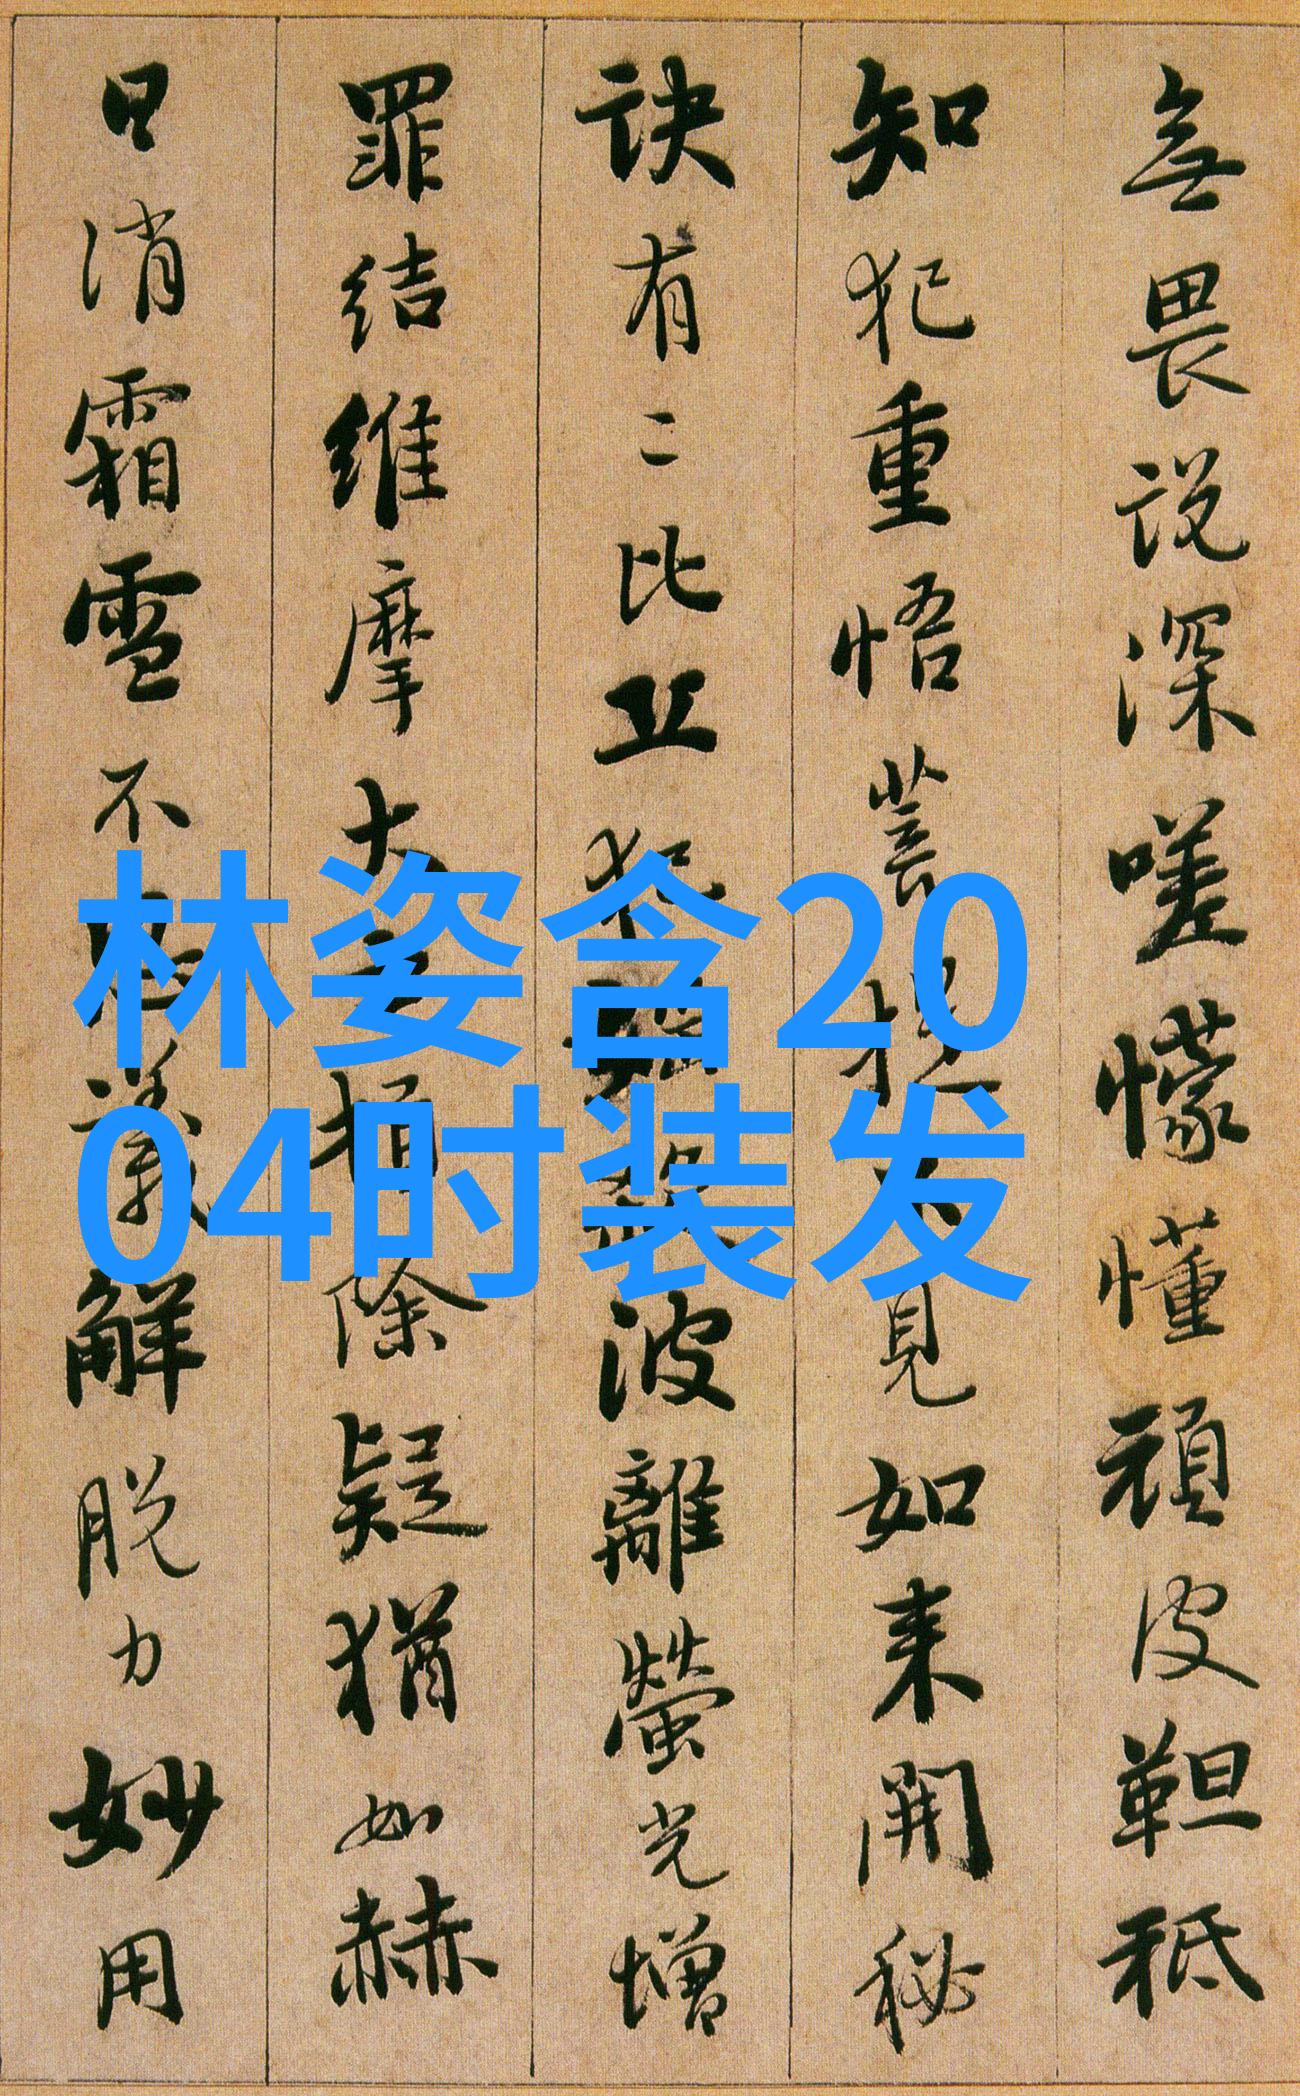 無畏说深嗟懞懂頑皮靼秪
知犯重悟菩提不見如来開秘
诀有二比丘犯波離螢光增
罪结維摩大除疑猶如赫
日消霜雪不議解脱力妙用
林姿含20
04时装发